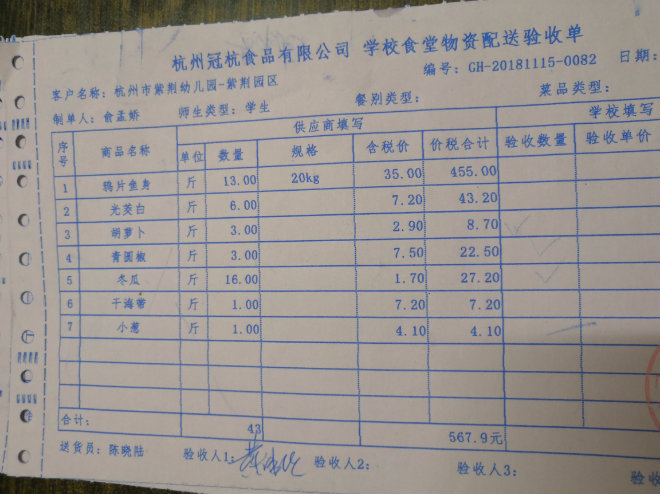 杭州冠杭食品有限公司 学校食堂物资配送验收单
编号: GH-20181115-0082 日期:
客户名称: 杭州市紫荆幼儿园-紫荆园区
制单人: 俞孟娇 师生类型: 学生 餐别类型: 菜品类型:
序号 商品名称 供应商填写 学校填写
单位 数量 规格 含税价 价税合计 验收数量 验收单价
1 鸦片鱼身 斤 13.00 20kg 35.00 455.00
2 光茭白 斤 6.00 7.20 43.20
3 胡萝卜 斤 3.00 2.90 8.70
4 青圆椒 斤 3.00 7.50 22.50
5 冬瓜 斤 16.00 1.70 27.20
6 干海带 斤 1.00 7.20 7.20
7 小葱 斤 1.00 4.10 4.10
合计: 43 567.9元
送货员: 陈晓陆 验收人1: 验收人2: 验收人3: 验收